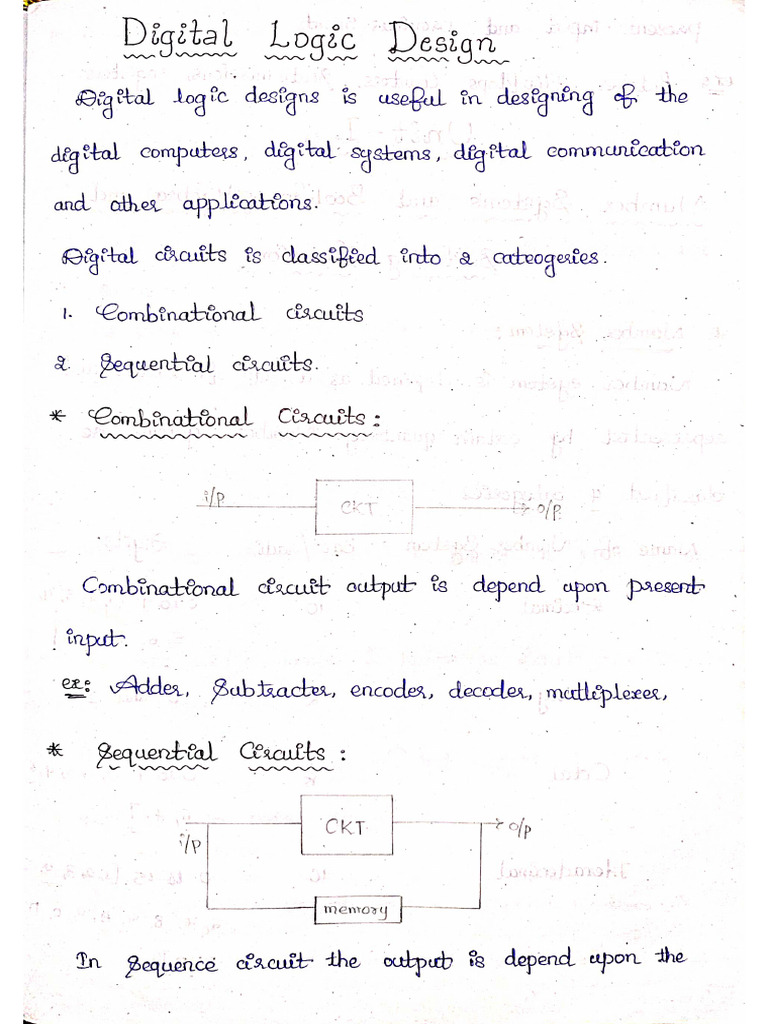 Digital Logic Design
Digital logic designs is useful in designing of the
digital computers, digital systems, digital communication
and other applications.
Digital circuits is classified into 2 cateogeries.
1. Combinational circuits
2. Sequential circuits.
* Combinational Circuits:
i/p CKT o/p
Combinational circuit output is depend upon present
input.
ex: Adder, Subtracter, encoder, decoder, mutliplexer,
* Sequential Circuits:
CKT o/p
i/p
memory
In Sequence circuit the output is depend upon the